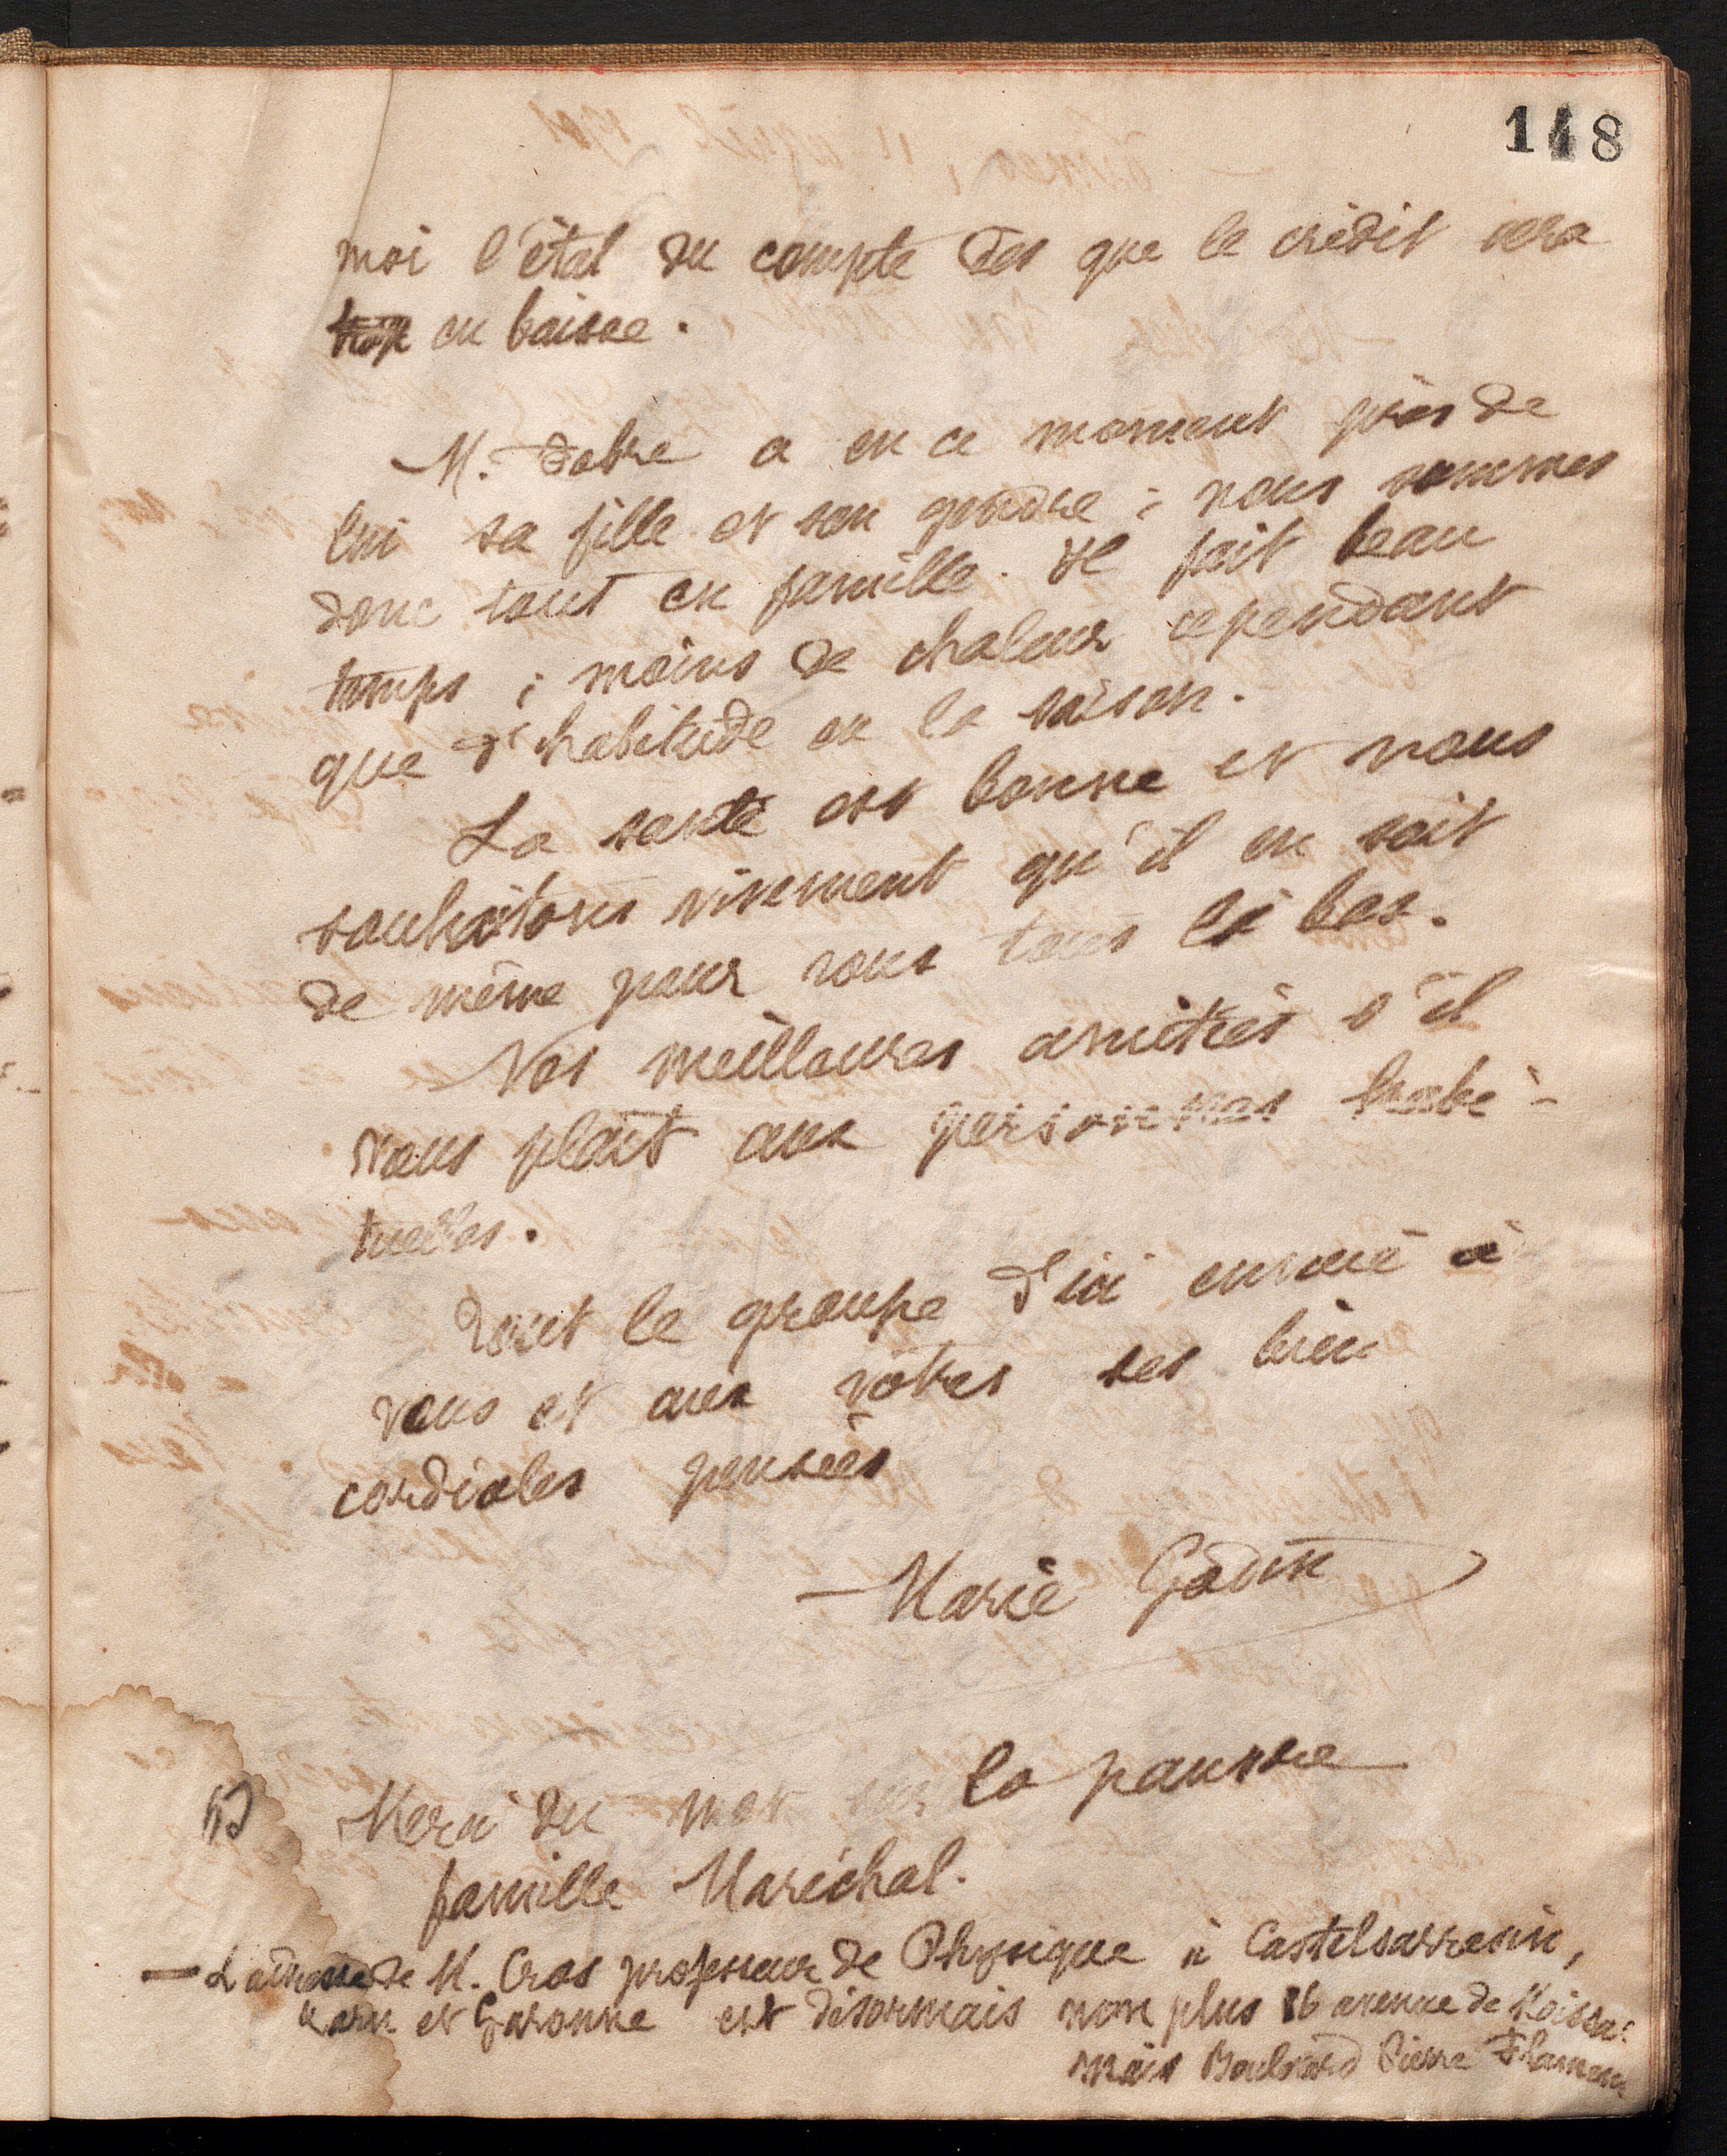 148
moi l'état du compte dès que le crédit sera
trop en baisse.
M. Dabre a en ce moment près de
lui sa fille et son gendre ; nous sommes
donc tout en famille. Il fait beau
temps ; moins de chaleur cependant
que d'habitude en la saison.
La santé est bonne et nous
souhaitons vivement qu'il en soit
de même pour vous tous là bas.
Nos meilleures amitiés s'il
vous plaît aux personnes habi-
tuelles.
Tout le groupe d'ici envoie à
vous et aux vôtres ses bien
cordiales pensées
Marie Godin
Merci du mot sur la pauvre
famille Maréchal.
— L'adresse de M. Cros professeur de Physique à Castelsarrasin,
Tarn et Garonne est désormais non plus 16 avenue de Moissac
mais Boulevard Pierre Flamens